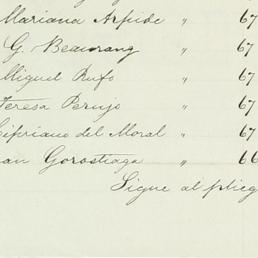 Mariana Arpide " 67
G. Beaurang " 67
Miguel Rufo " 67
Teresa Perujo " 67
Cipriano del Moral " 67
an Gorostiaga " 66
Sigue al plieg